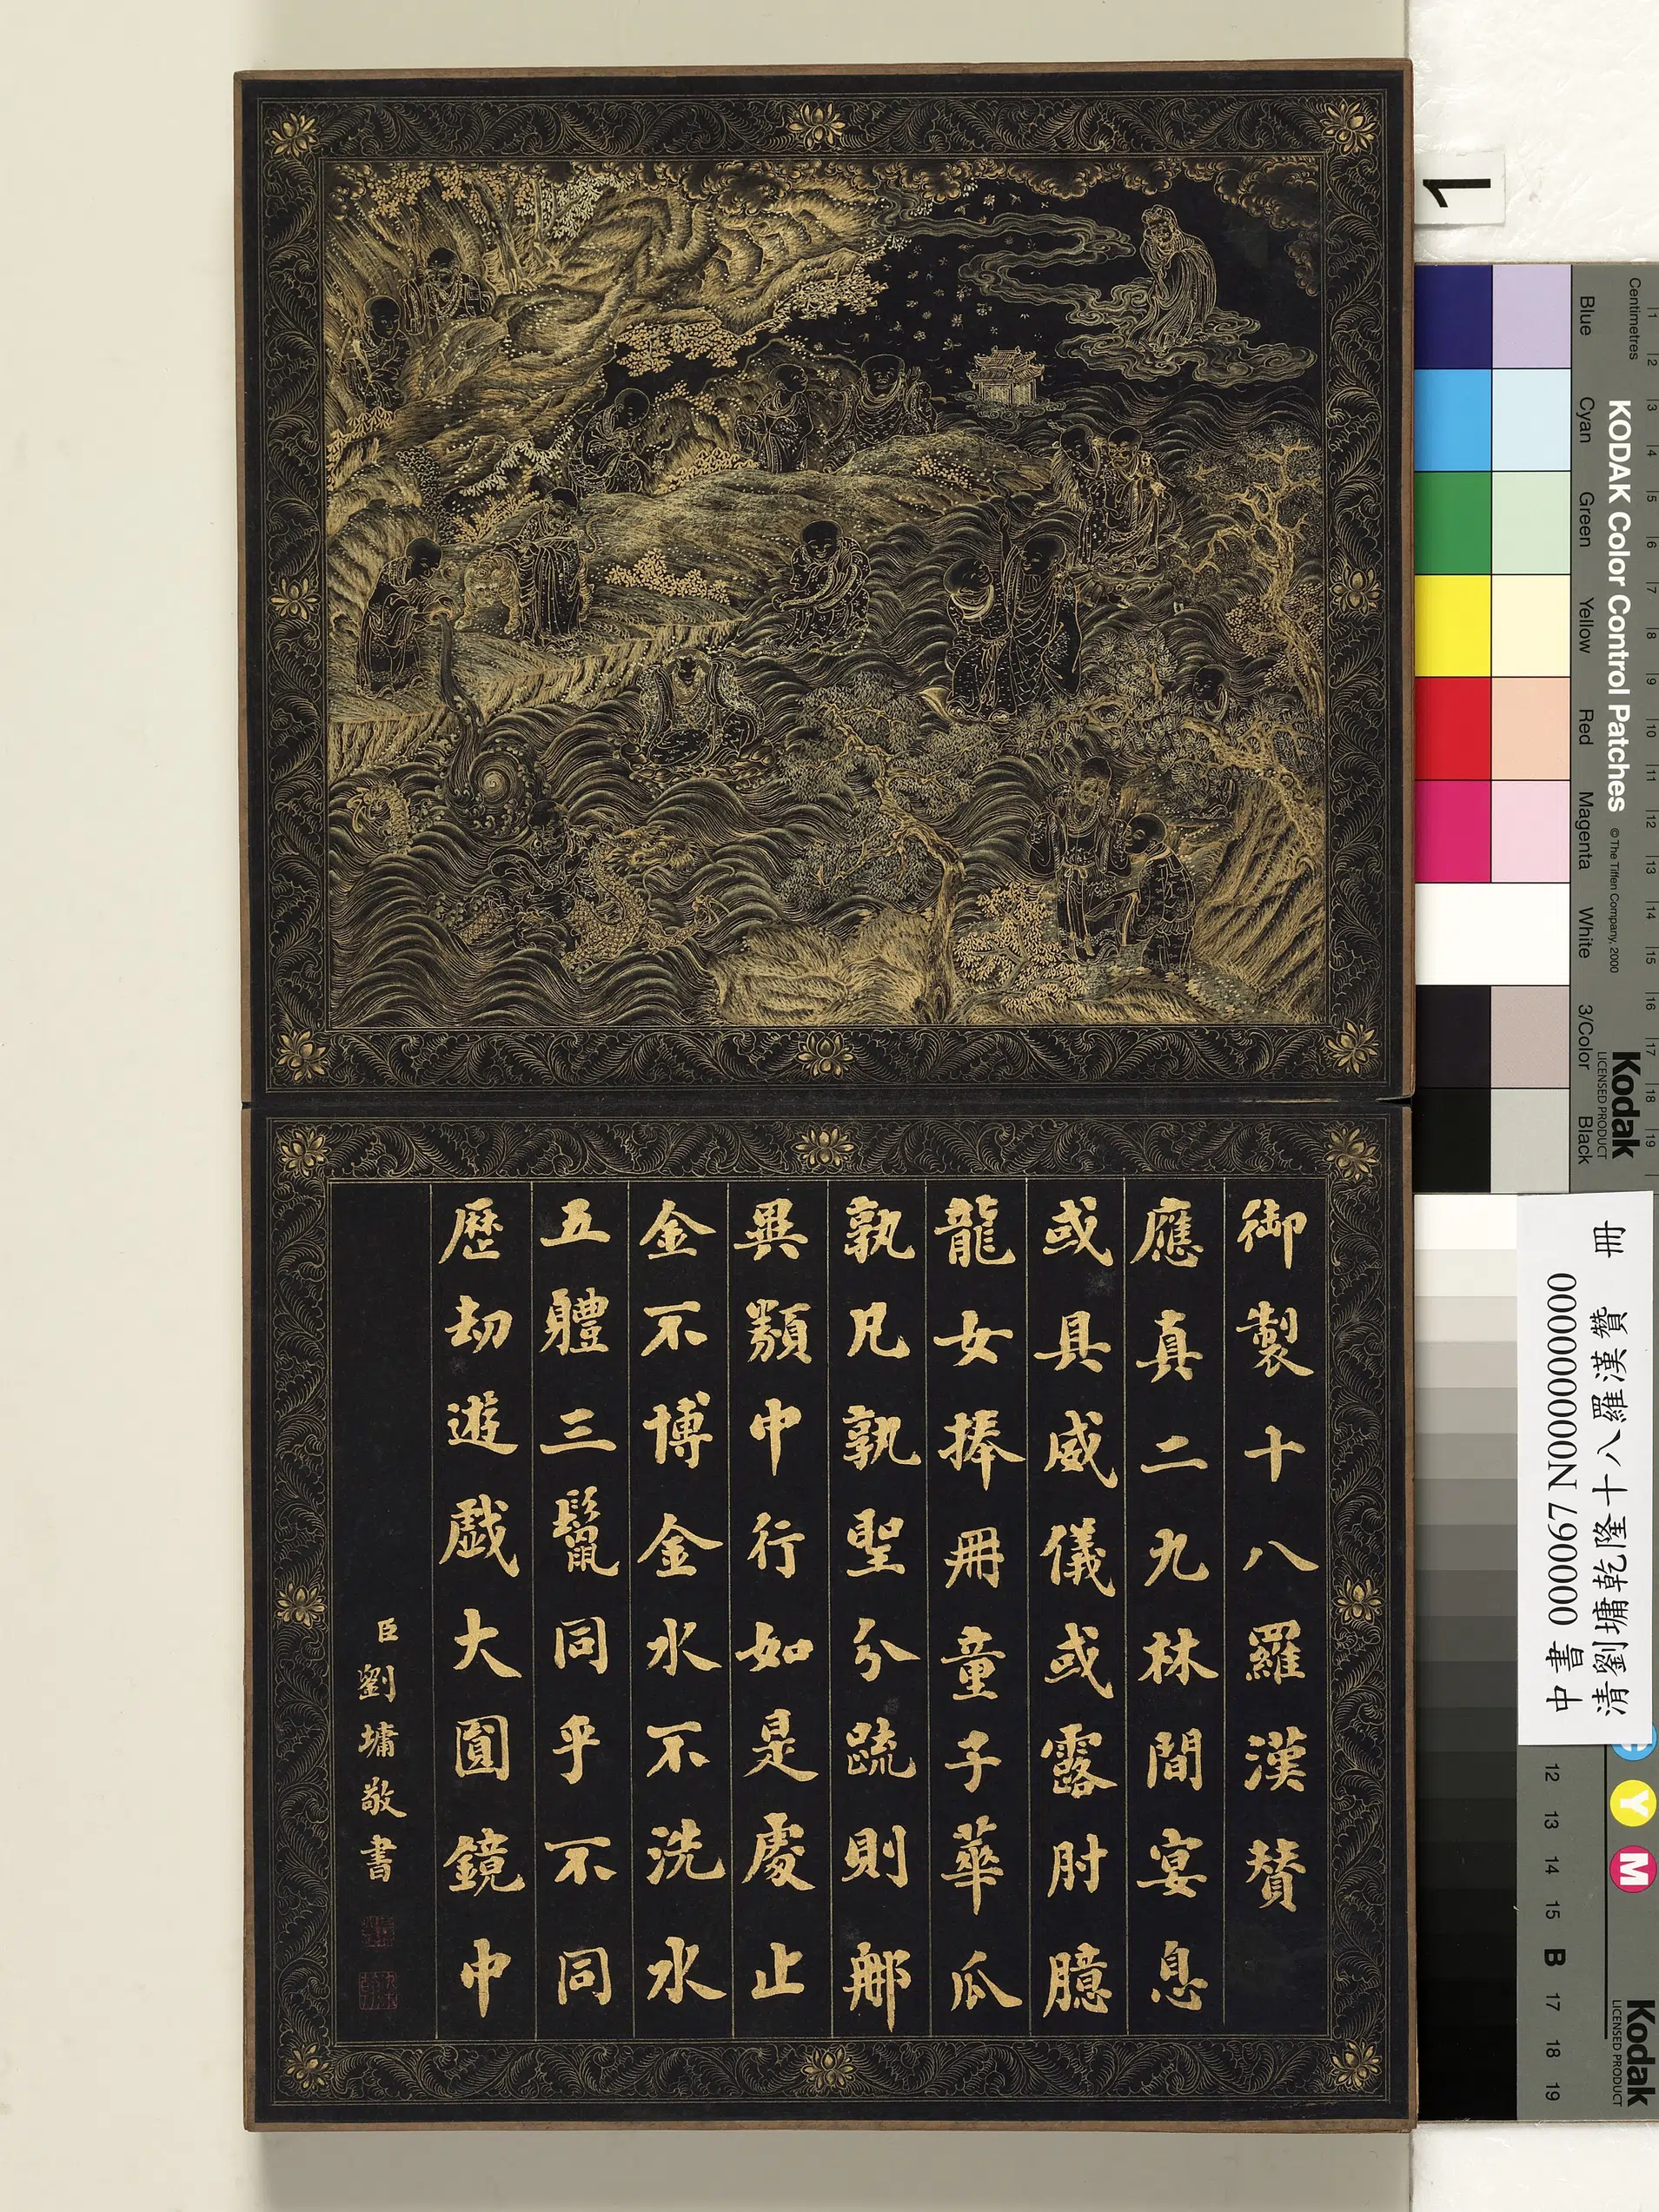 御製十八羅漢贊
應真二九林間宴息
或具威儀或露肘臆
龍女捧冊童子華瓜
孰凡孰聖分疏則那
異類中行如是處止
金不博金水不洗水
五體三鬣同乎不同
歷劫遊戲大圓鏡中
臣劉墉敬書
1
Centimetres
1 2 3 4 5 6 7 8 9 10 11 12 13 14 15 16 17 18 19
KODAK Color Control Patches
© The Tiffen Company, 2000
Kodak
LICENSED PRODUCT
Blue
Cyan
Green
Yellow
Red
Magenta
White
3/Color
Black
中書 000067 N000000000
清劉墉乾隆十八羅漢贊 冊
12 13 14 15 B 17 18 19
Y
M
Kodak
LICENSED PRODUCT